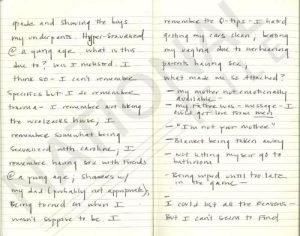 grade and showing the boys
my underpants. Hyper-sexualized
@ a young age. what is this
due to? Was I molested. I
think so - I can't remember
specifics but I do remember
trauma - I remember not liking
the house, I
remember somewhat being
sexualized with, I
remember having sex with friends
@ a young age; showers w/
my dad (probably not appropriate).
Being turned on when I
wasn't suppose to be. I
remember the Q-tips - I hated
getting my ears clean, basing
my due to overhearing
parents having sex,
what made me so attached?
- my mother not emotionally
available -
- my father was - message - I
could get love from men
- "I'm not your mother"
- Blanket being taken away
- not letting myself go to
bathroom
- Being until too late
in the game -
I could list all the reasons -
But I can't seem to find